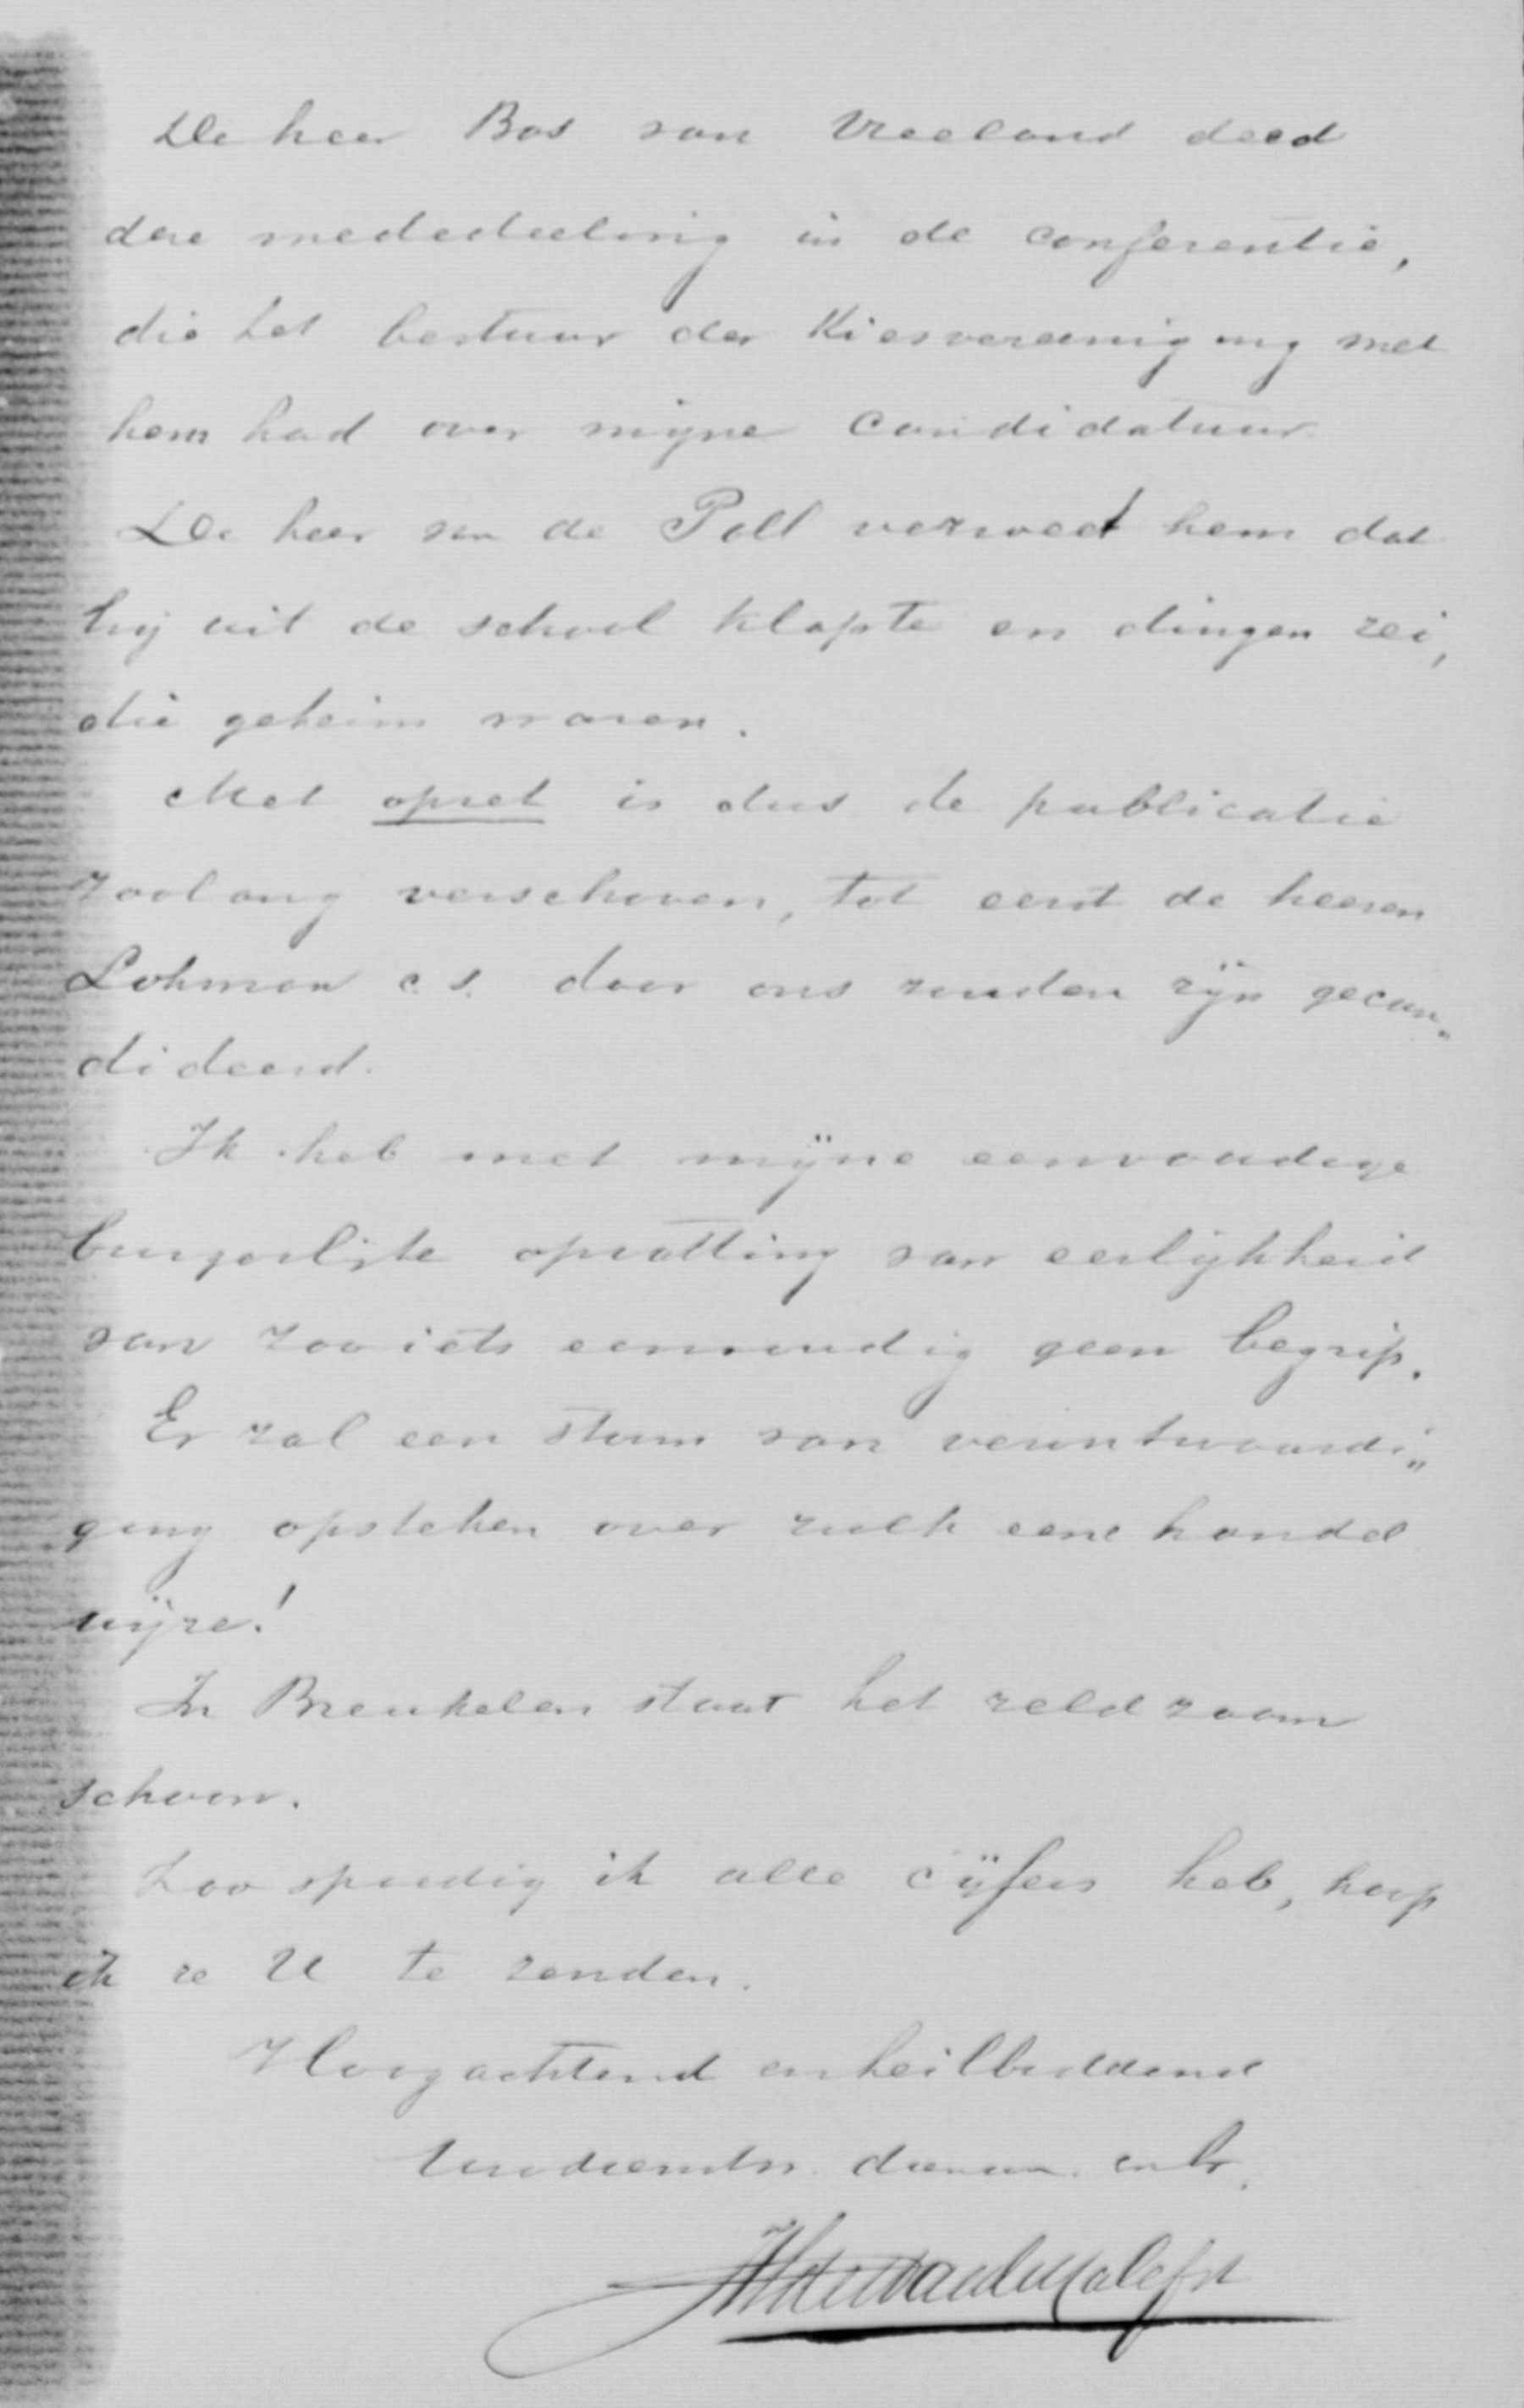 De heer Bos van Vreeland deed
deze mededeeling in de conferentie,
die het bestuur der Kiesvereeniging met
hem had over mijne Candidatuur.
De heer van de Poll verweet hem dat
hij uit de school klapte en dingen zei,
die geheim waren.
Met opzet is dus de publicatie
zoolang verschoven, tot eerst de heeren
Lohman c.s. door ons zouden zijn gecan„
dideerd.
Ik heb met mijne eenvoudige
burgerlijke opvatting van eerlijkheid
van zoo iets eenvoudig geen begrip.
Er zal een storm van verontwaardi„
ging opsteken over zulk eene handel
wijze!
In Breukelen staat het zeldzaam
schoon.
Zoo spoedig ik alle cijfers heb, hoop
ik ze U te zenden.
Hoogachtend en heilbiddend
Uwdienstw. dienaar en br.